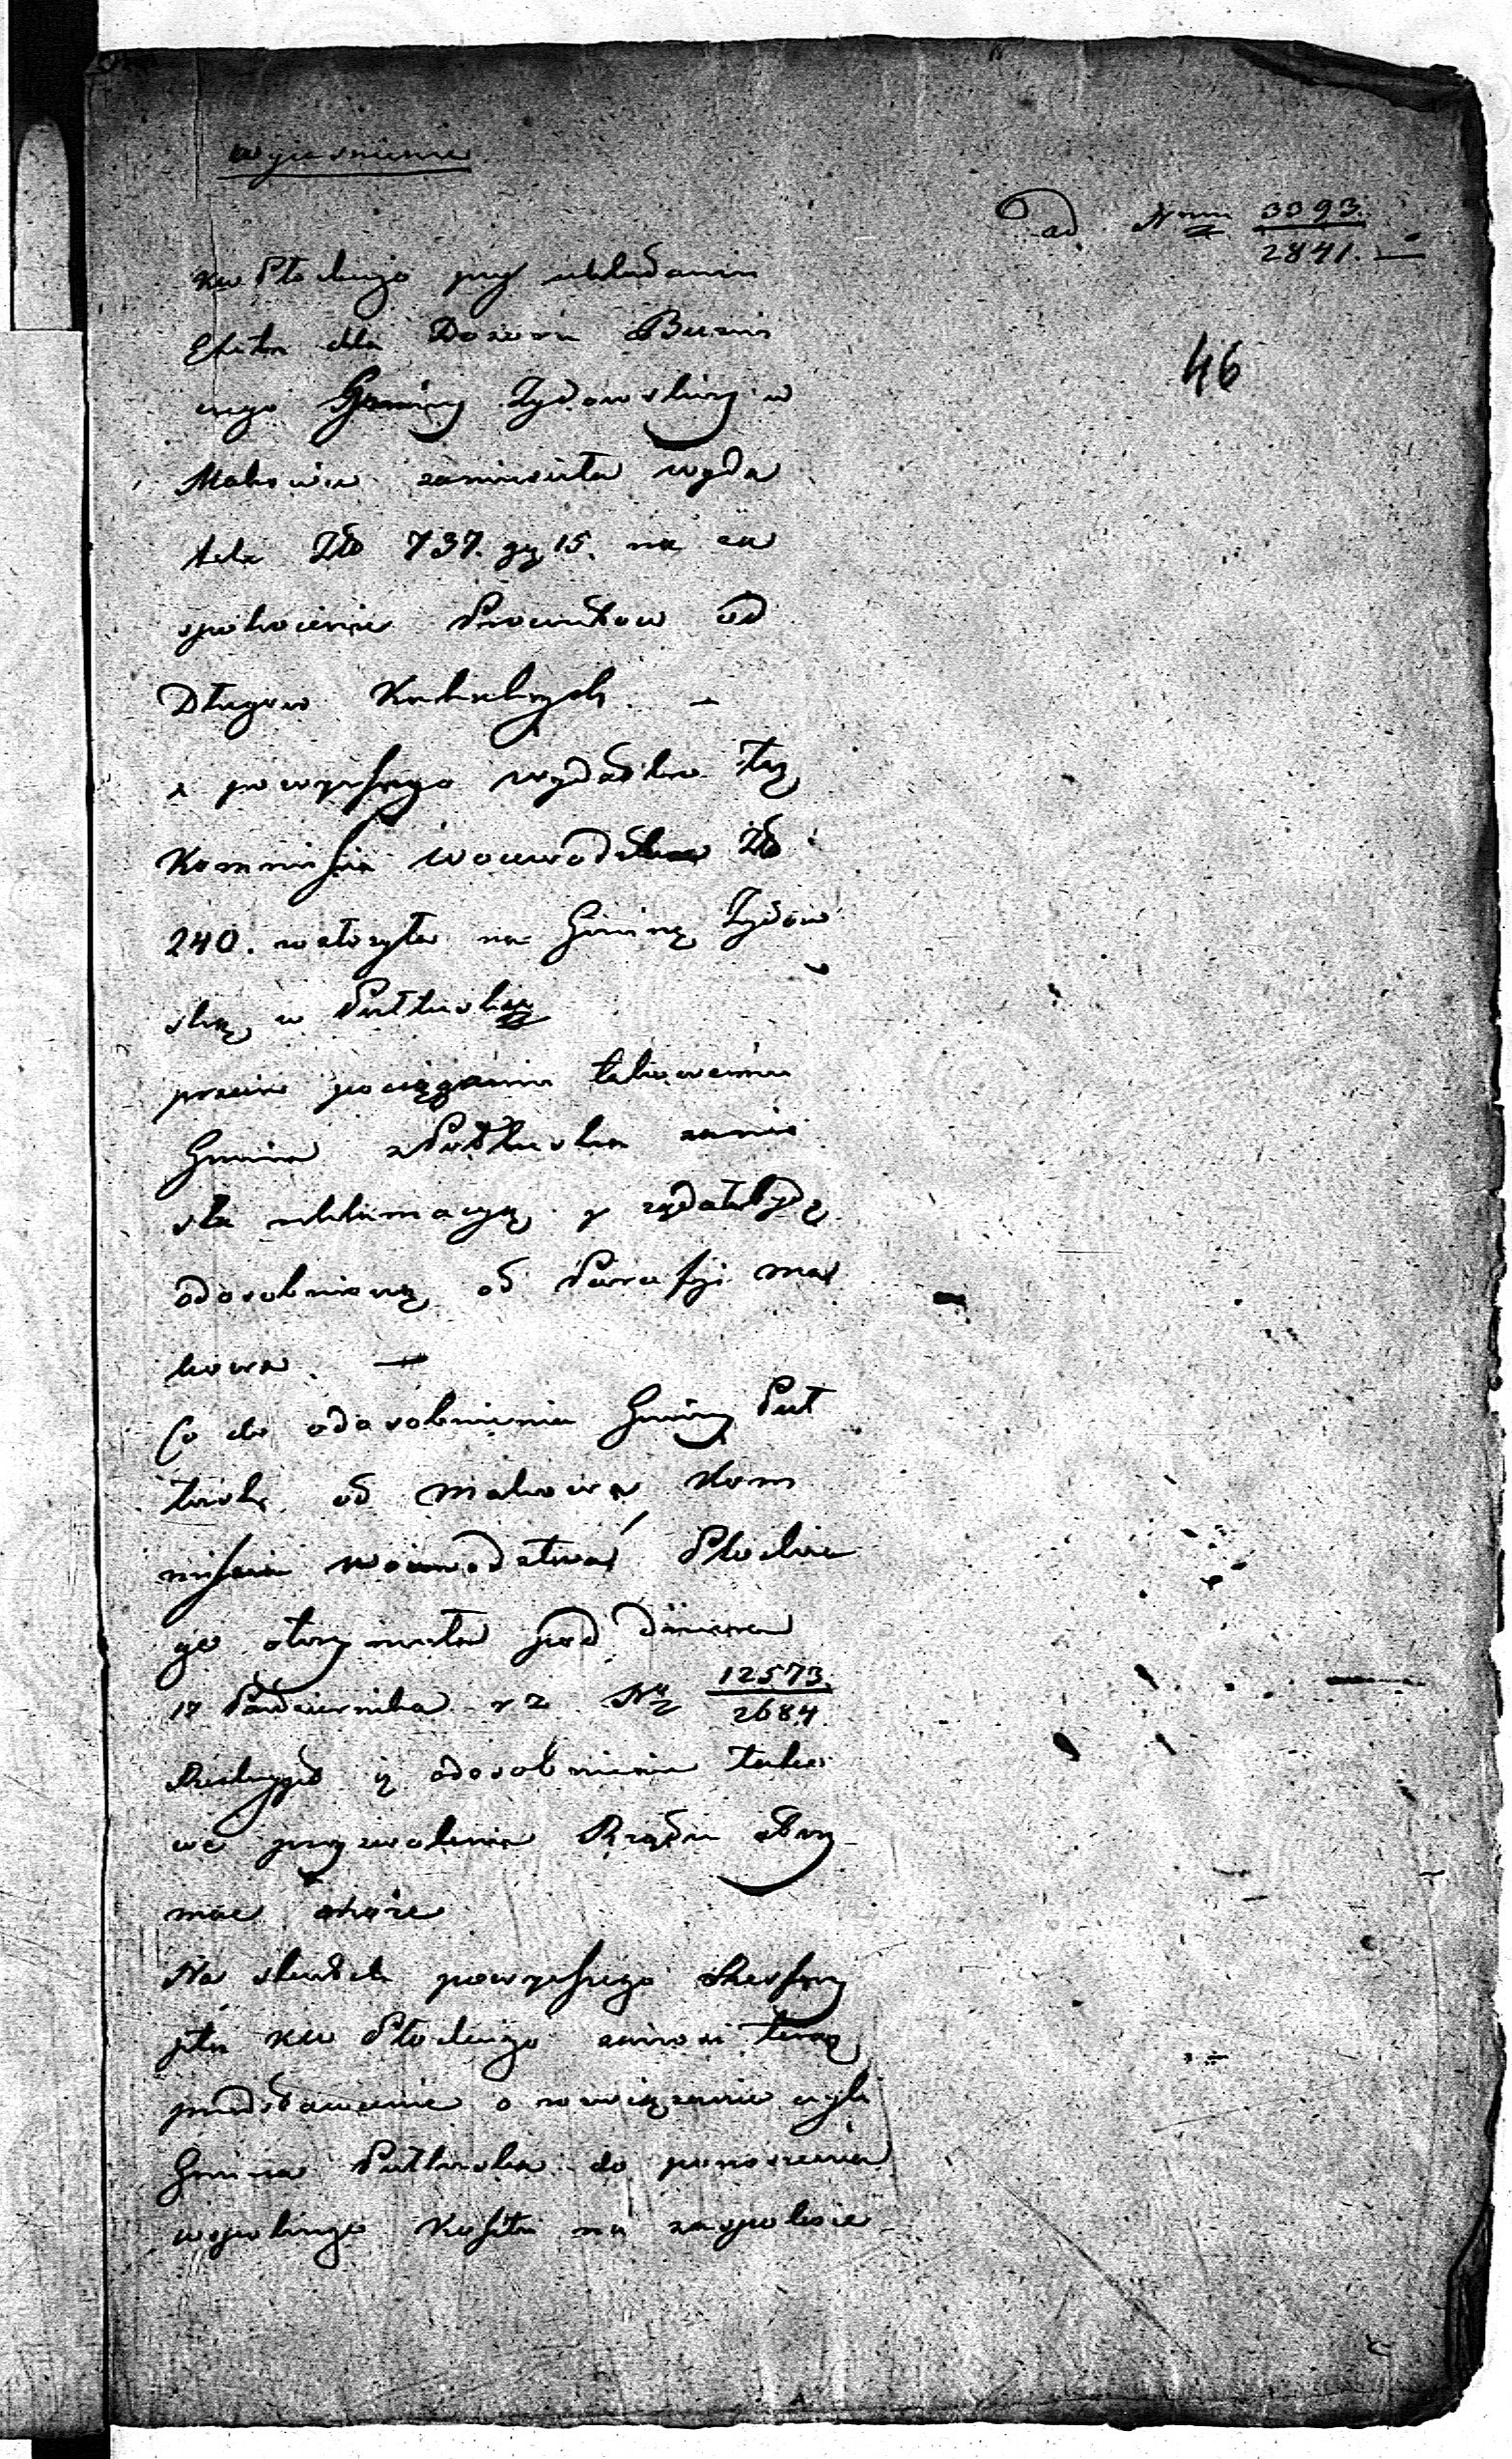 wyjasnienie
ad Num 3393.
2841. —
46
KW Płockiego przy układaniu
Etatu dla Dozoru Bużni
cnego Gminy Żydowskiey w
Makowie zamieściła wyda
tek Złp 737. gr 15. na za
spokoienie Prowizkow od
Długow Kahalnych. —
z powyższego wydatku taż
Kommissia Woiewodzka Złp
240. włożyła na Gminę Żydow
ską w Pułtusku
przeciw pociąganiu takowemu
Gmina z Pułtuska zanio
sła reklamacyą, y żądała bydz
odosobnioną od Parafyi Ma
kowa. —
Co do odosobnienia Gminy Puł
tuska od Makowa Kom
missia Woiewodztwa Płockie
go otrzymała pod dniem
17 Pazdziernika r z N 12573.
2684.
Reskrypt iż odosobnienie tako
we przyzwolenie Rządu otrzy
mac może
Na skutek powyższego Reskryp
ptu KW Płockiego zanosi teraz
przedstawienie o rozwiązanie czyli
Gmina Pułtuska do ponoszenia
wspolnego Kosztu na zaspokoie